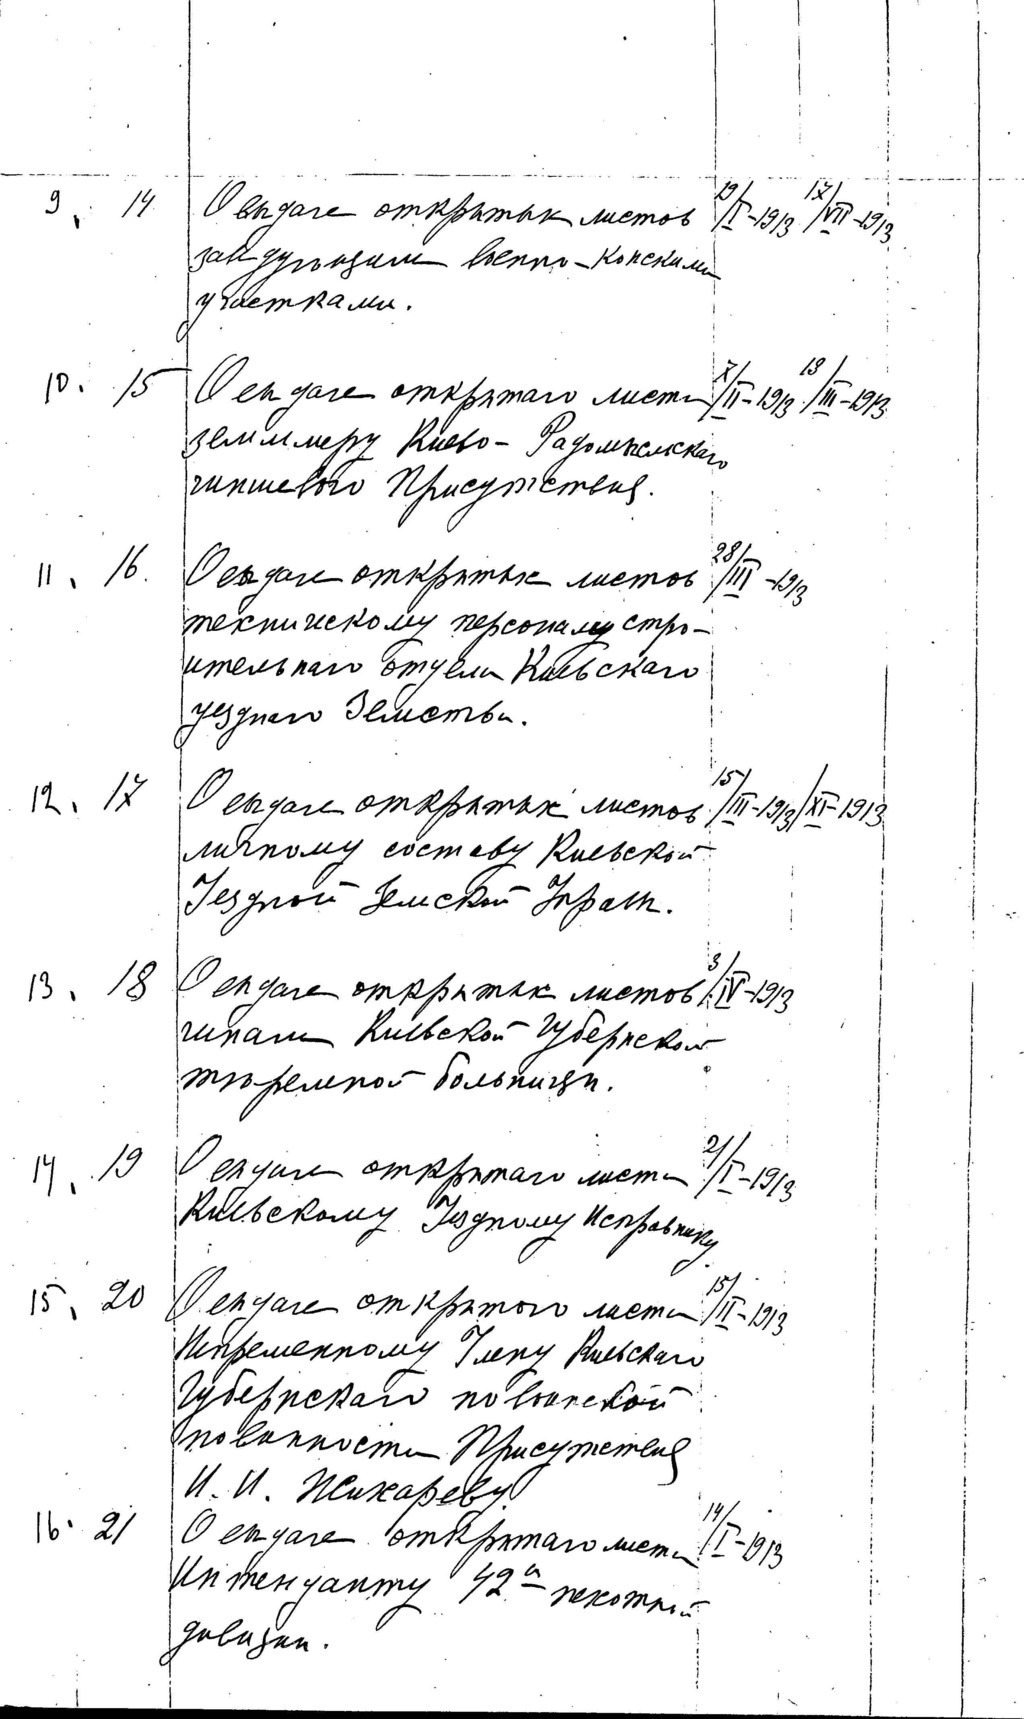 9. 14. О выдаче открытых листов 19/I-1913 17/VII-1913
заведующим военно-конскими
участками.
10. 15 О выдаче открытаго листа X/II-1913 13/III-1913
землемеру Киево-Радомысльскаго
чиншевого Присутствия.
11. 16. О выдаче открытых листов 28/III-1913
техническому персоналу стро-
ительнаго отдела Киевскаго
уезднаго Земства.
12. 17 О выдаче открытых листов 15/III-1913 /XI-1913
личному составу Киевской
Уездной Земской Управы.
13. 18 О выдаче открытых листов 3/IV-1913
чинам Киевской Губернской
тюремной больницы.
14. 19 О выдаче открытаго листа 21/I-1913
Киевскому Уездному Исправнику.
15. 20 О выдаче открытого листа 15/II-1913
Непременному Члену Киевскаго
Губернскаго по воинской
повинности Присутствия
И. И. Жихареву.
16. 21 О выдаче открытаго листа 14/I-1913
Интенданту 42й пехотной
дивизии.